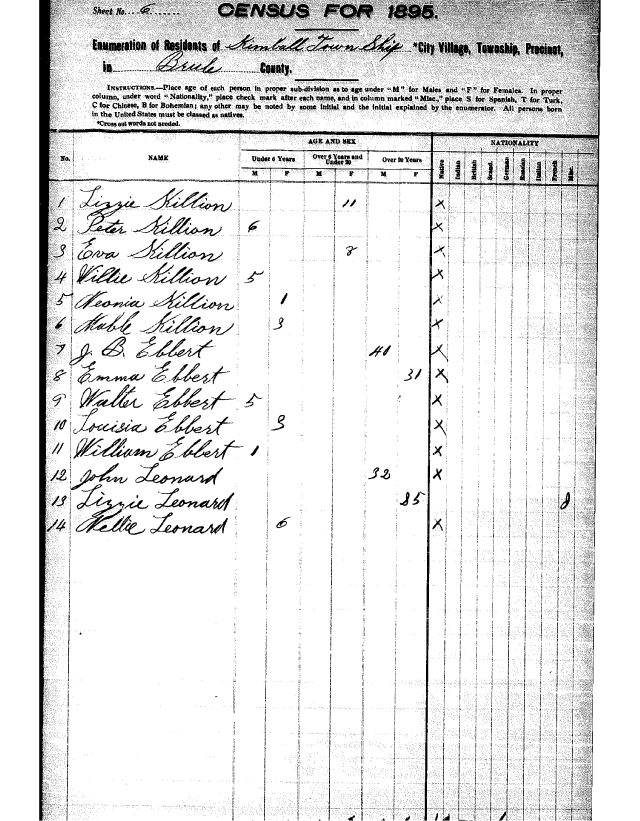 Sheet No. 6
CENSUS FOR 1895.
Enumeration of Residents of Kimball Town Ship *City Village, Township, Precinct,
in Brule County.
INSTRUCTIONS.—Place age of each person in proper sub-division as to age under "M" for Males and "F" for Females. In proper
column, under word "Nationality," place check mark after each name, and in column marked "Misc.," place S for Spanish, T for Turk,
C for Chinese, B for Bohemian; any other may be noted by some initial and the initial explained by the enumerator. All persons born
in the United States must be classed as natives.
*Cross out words not needed.
AGE AND SEX NATIONALITY
No. NAME Under 6 Years Over 6 Years and Under 20 Over 20 Years Native Indian British Scand. German Russian Italian French Misc.
M F M F M F
1 Lizzie Killion 11 X
2 Peter Killion 6 X
3 Eva Killion 8 X
4 Willie Killion 5 X
5 Neonia Killion 1 X
6 Mable Killion 3 X
7 J. B. Ebbert 40 X
8 Emma Ebbert 31 X
9 Walter Ebbert 5 X
10 Louisia Ebbert 3 X
11 William Ebbert 1 X
12 John Leonard 32 X
13 Lizzie Leonard
14 Nellie Leonard 6 X